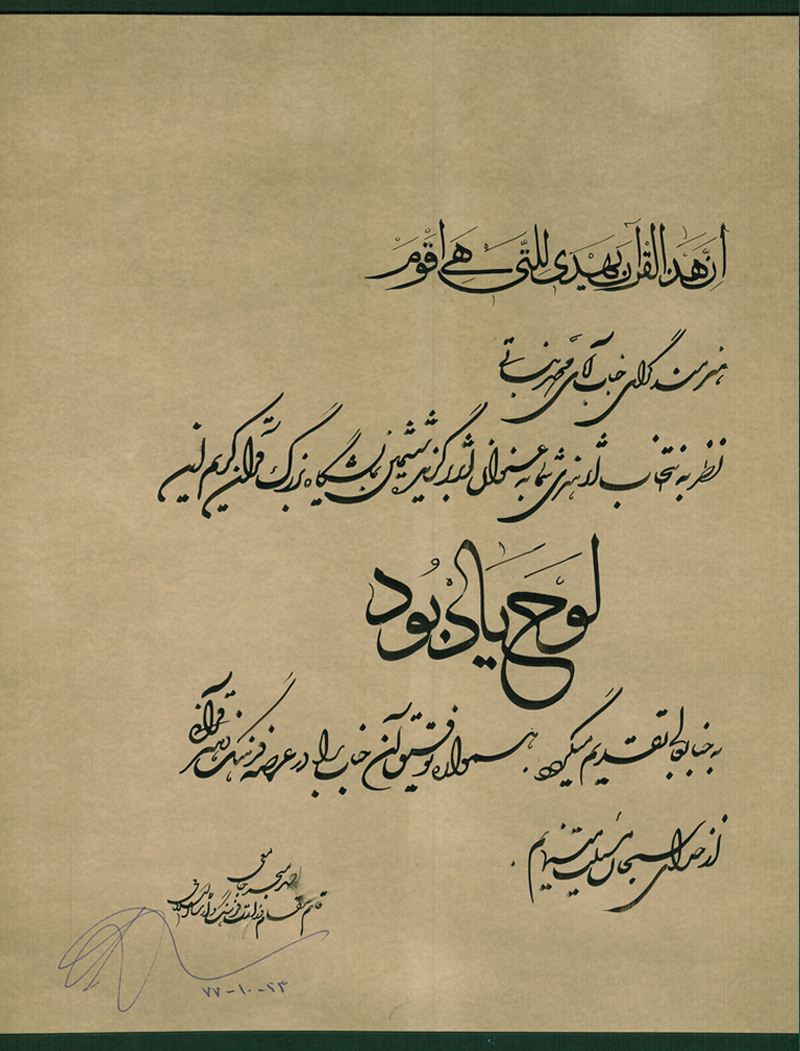 ان هذا القرآن یهدی للتی هی اقوم
هنرمند گرامی جناب آقای
نظر به انتخاب اثر هنری شما به عنوان اثر برگزیده ششمین نمایشگاه بزرگ قرآن کریم این
لوح یادبود
به جنابعالی تقدیم میگردد. همواره توفیق آن جناب را در عرصه فرهنگ و هنر قرآنی
از خدای سبحان مسئلت مینمائیم.
احمد مسجدجامعی
قائم مقام وزارت فرهنگ و ارشاد اسلامی
۷۷-۱۰-۲۳